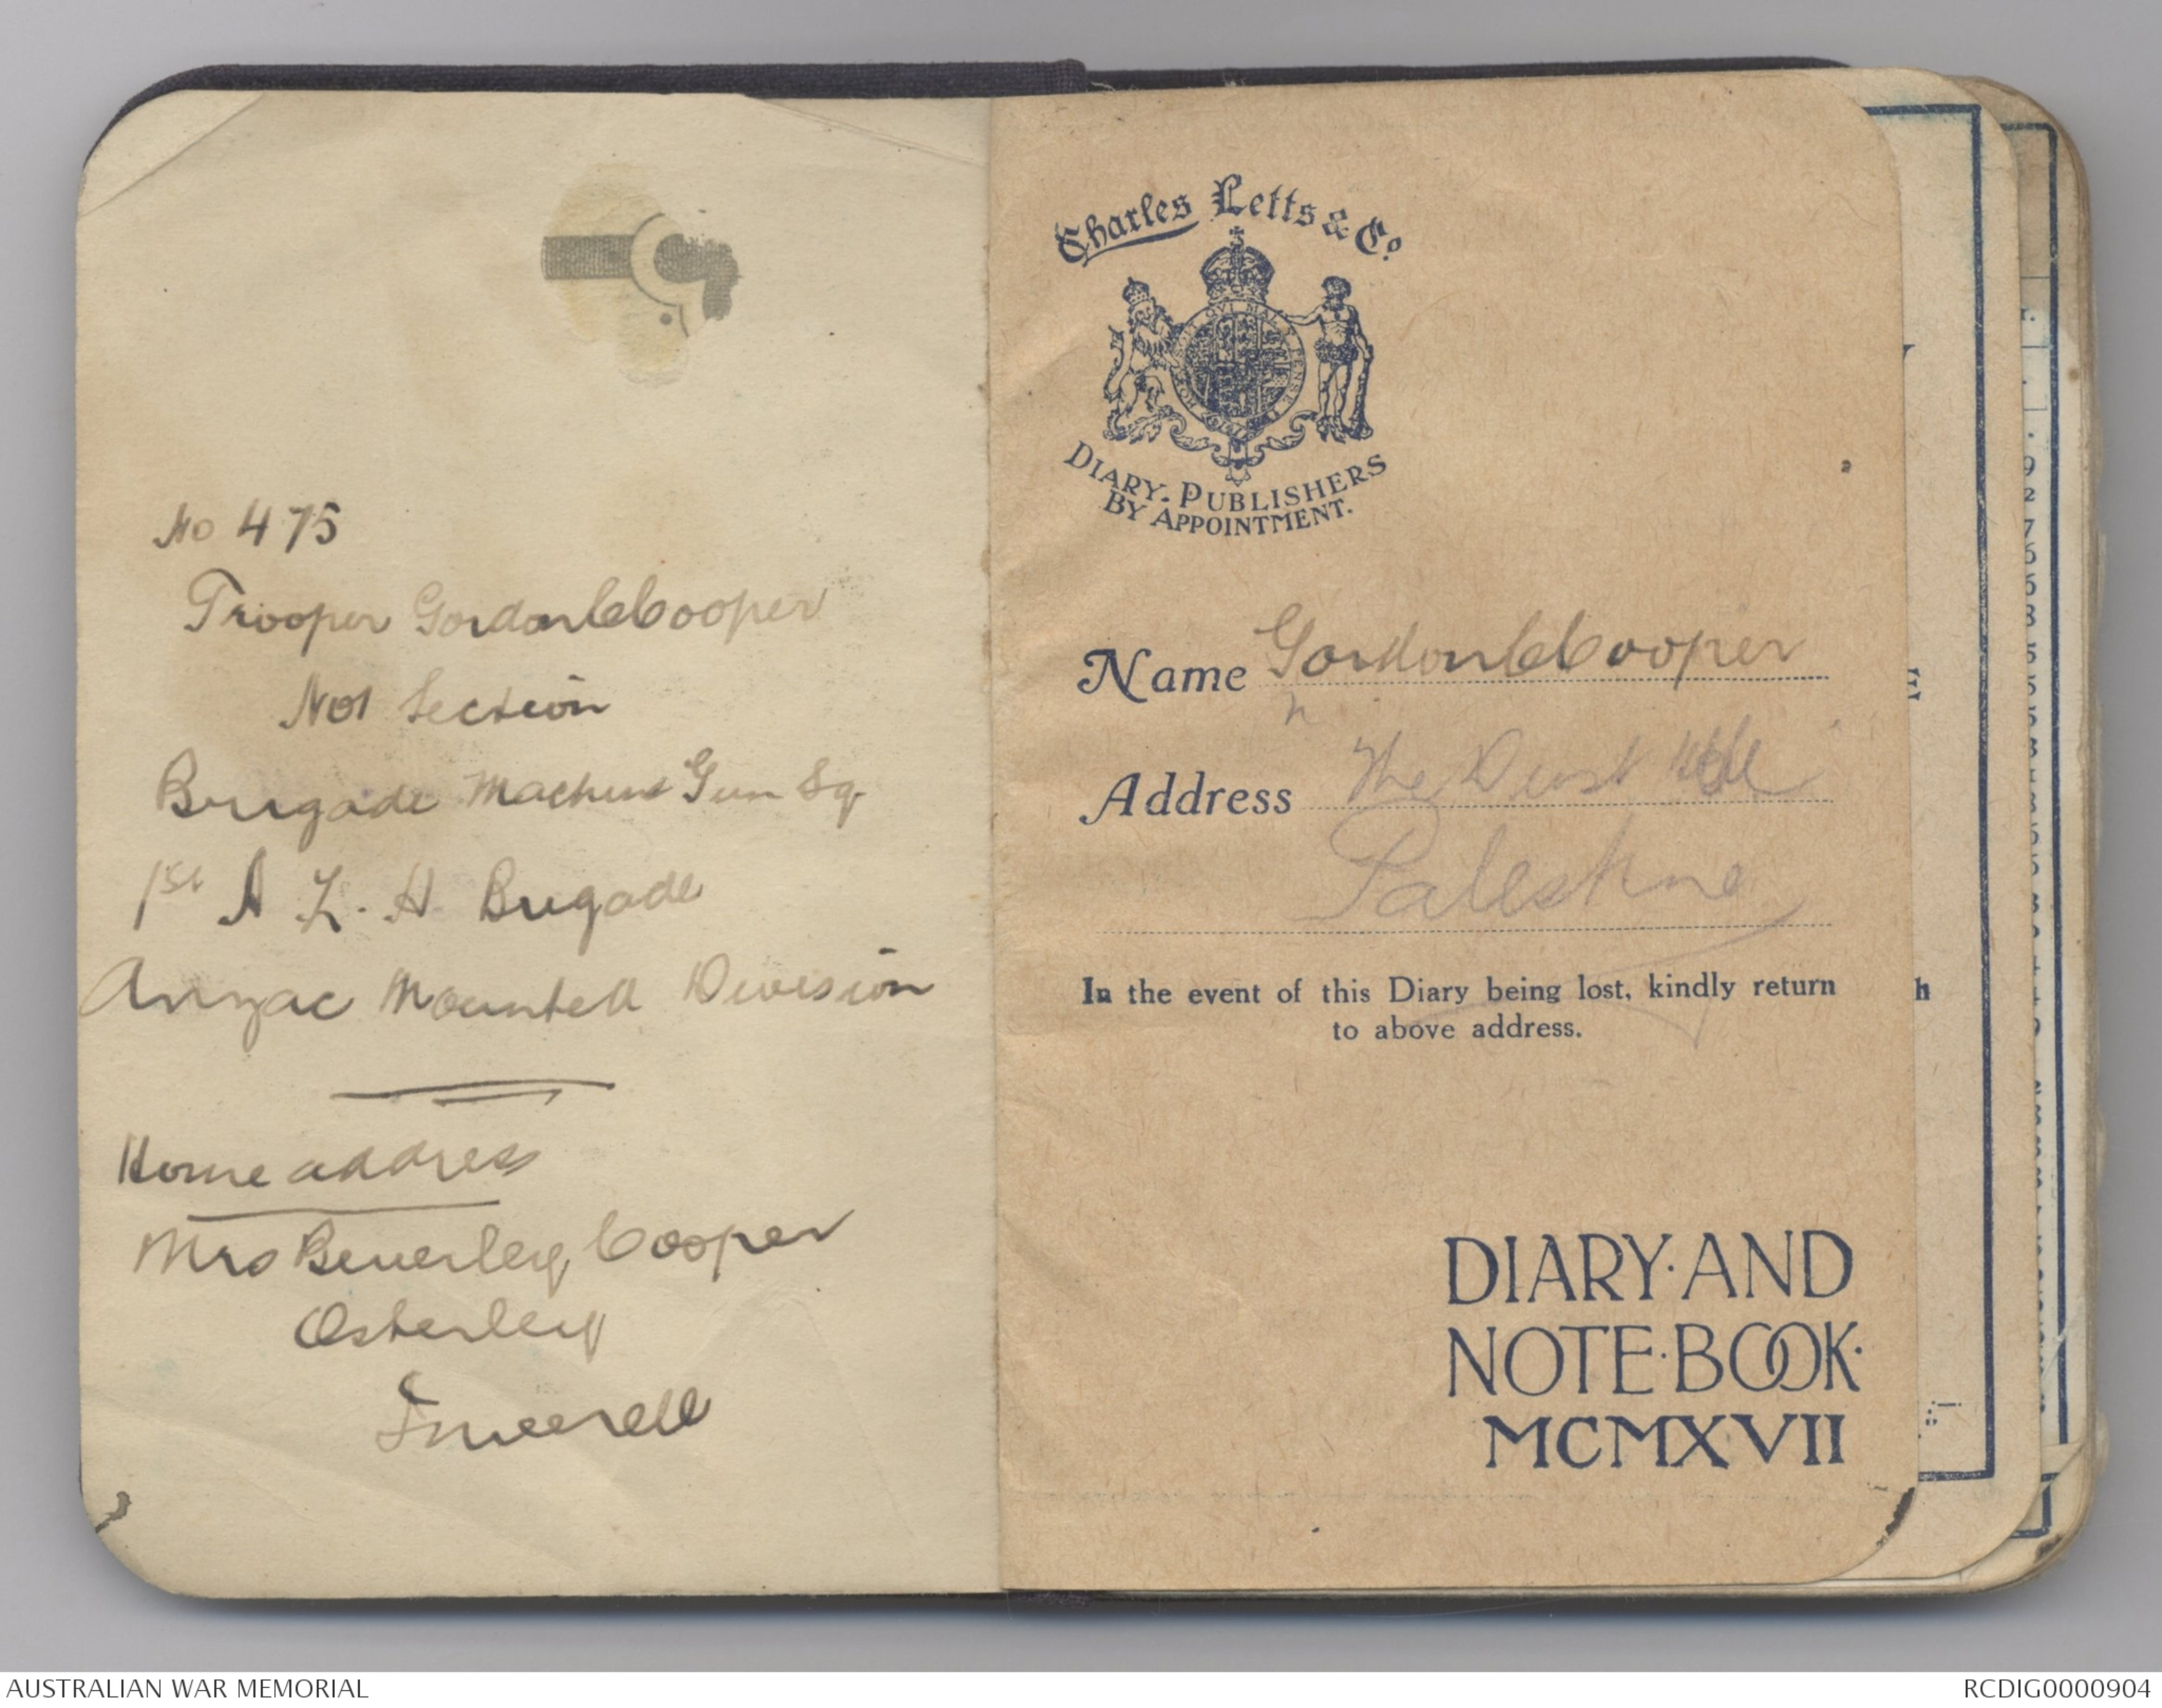 No 475
Trooper Gordon C Cooper
No 1 Section
Brigade Machine Gun Sq
1st A L. H Brigade
Anzac Mounted Division
Home address
Mrs Beverley Cooper
Osterley
Inverell
Charles Letts & Co.
DIARY PUBLISHERS
BY APPOINTMENT.
Name Gordon C Cooper
Address The Dust
Palestine
In the event of this Diary being lost, kindly return
to above address.
DIARY·AND
NOTE·BOOK·
MCMXVII
AUSTRALIAN WAR MEMORIAL
RCDIG0000904